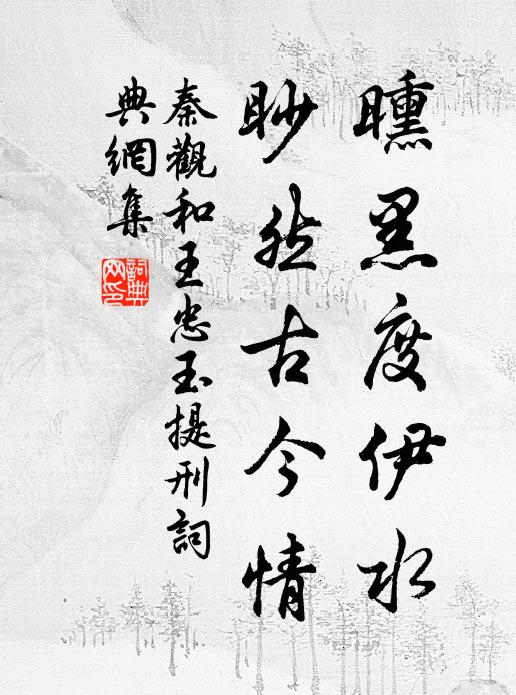 曛黑度伊水
眇然古今情
秦觀和王忠玉提刑詞
典網集
詞典
网印